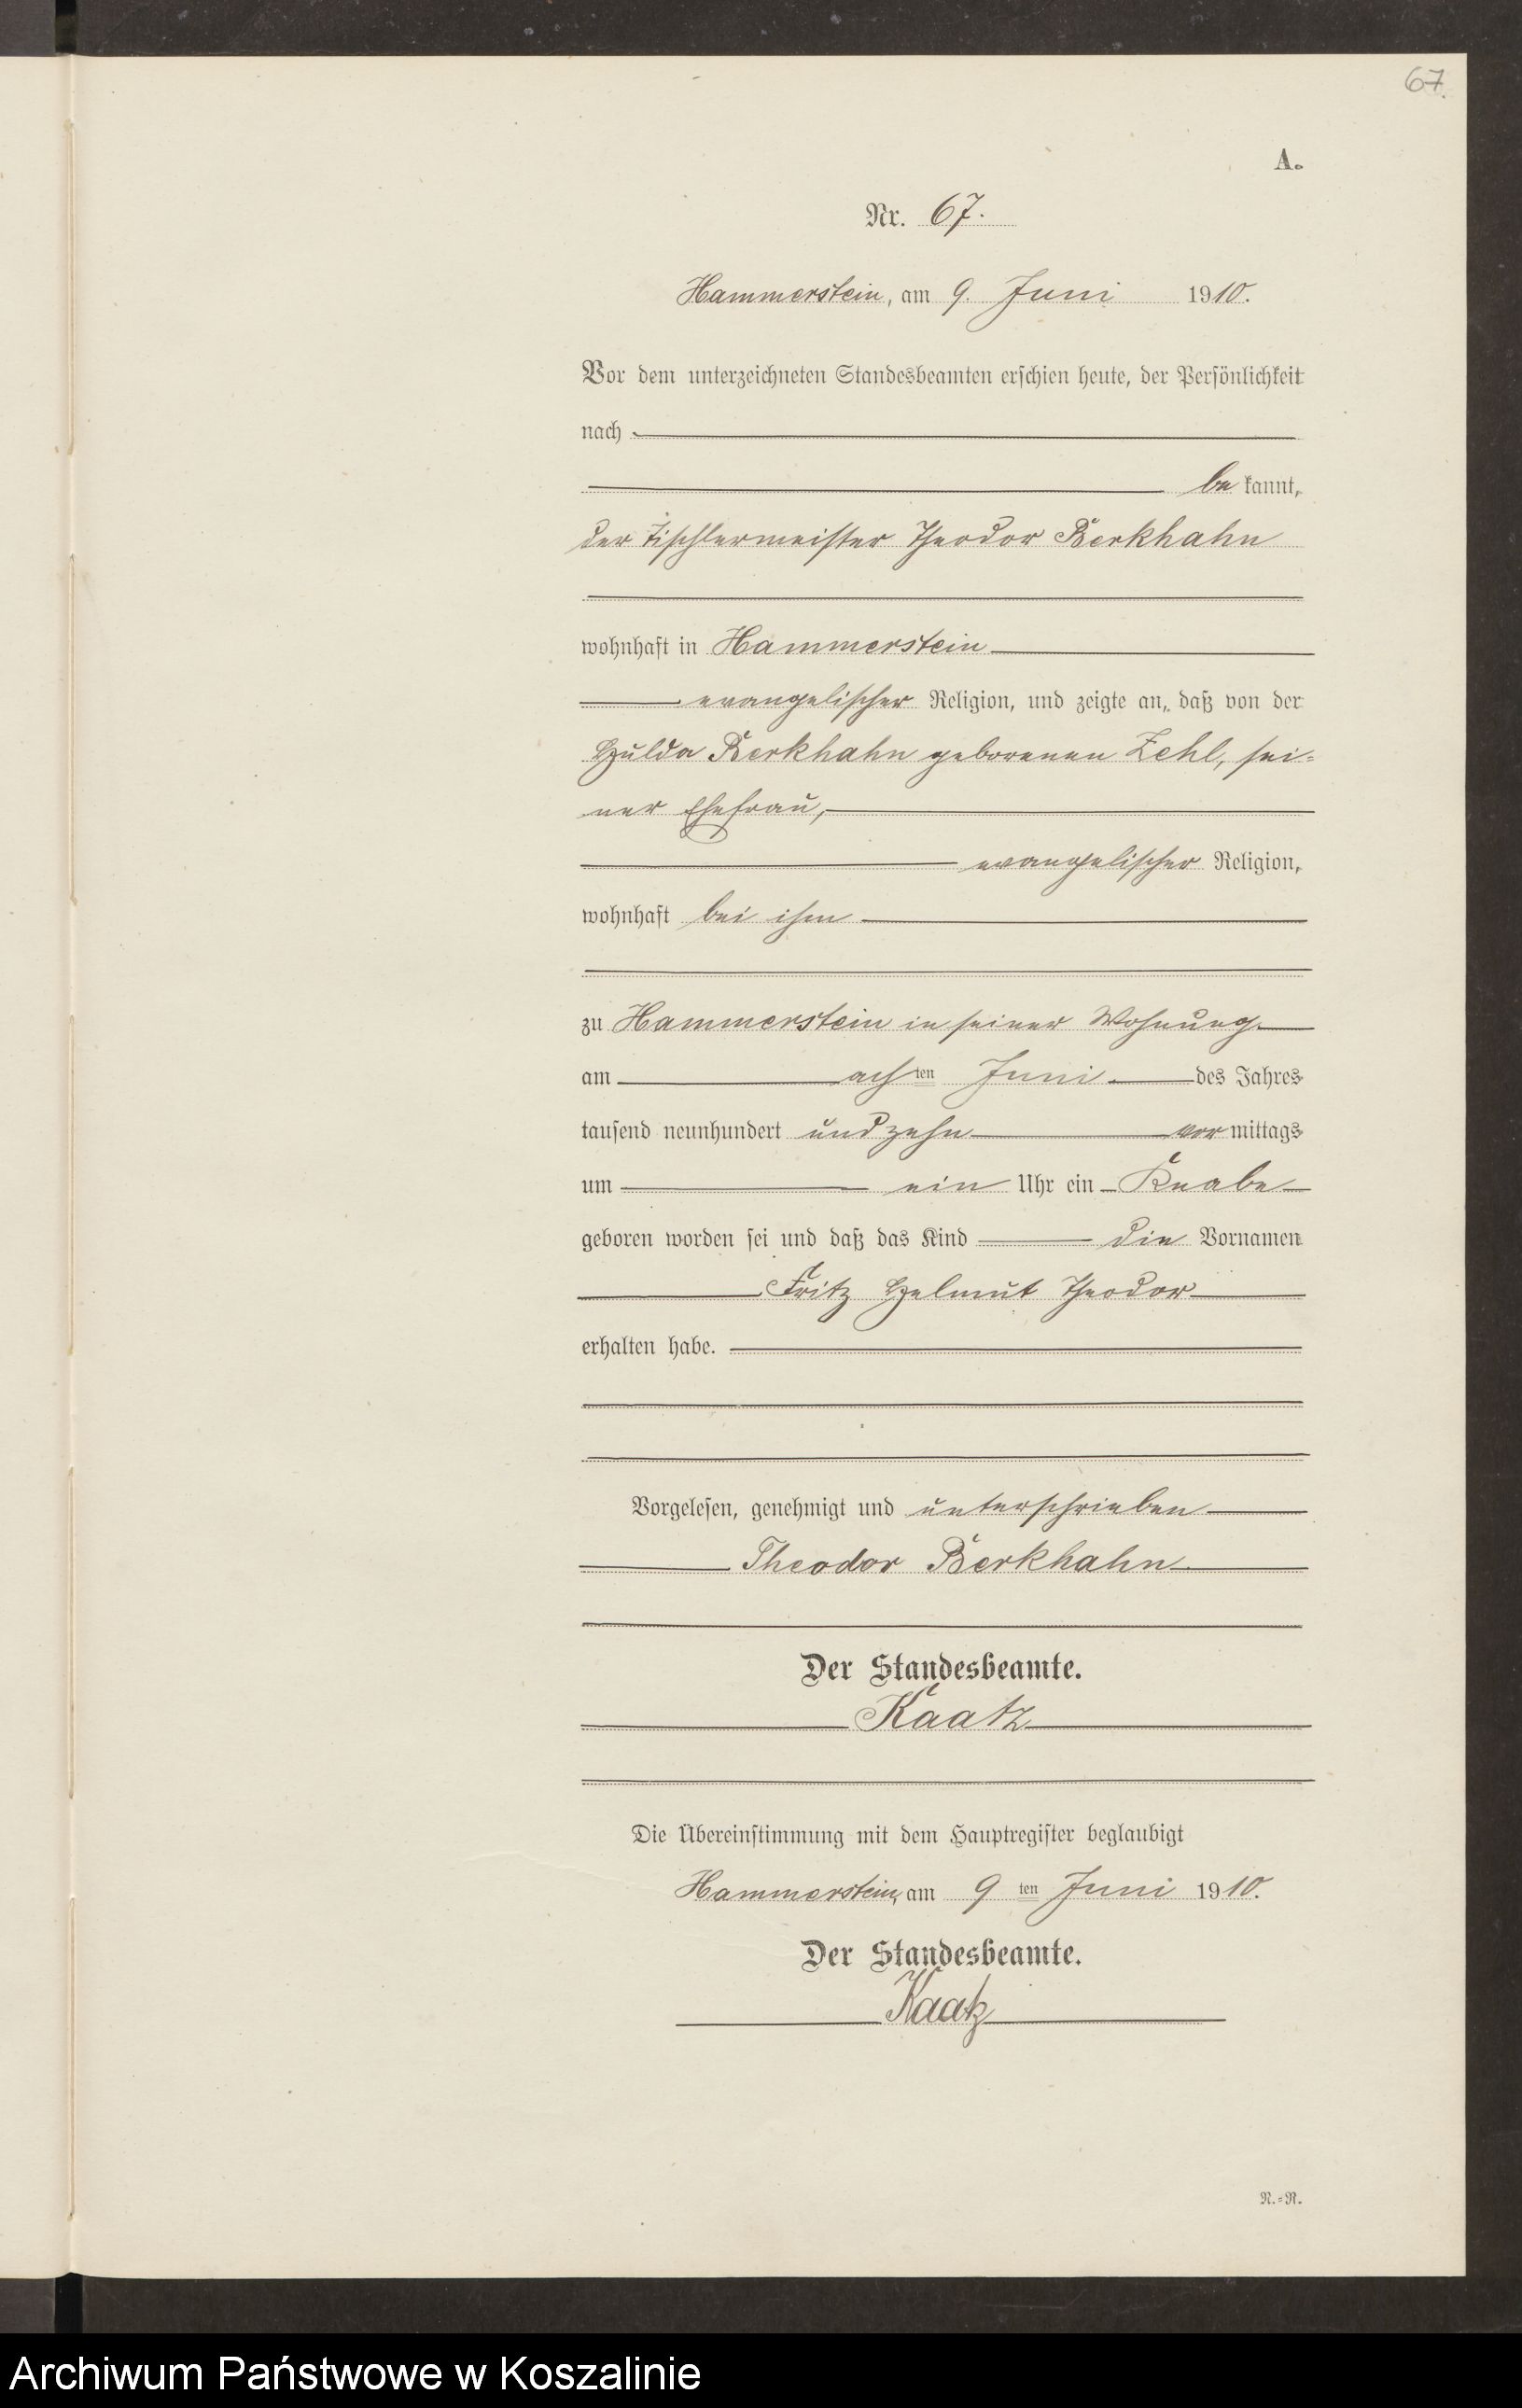 67.
A.
Nr. 67.
Hammerstein, am 9. Juni 1910.
Vor dem unterzeichneten Standesbeamten erschien heute, der Persönlichkeit
nach
be kannt,
der Tischlermeister Theodor Berkhahn
wohnhaft in Hammerstein
evangelischer Religion, und zeigte an, daß von der
Hulda Berkhahn geborenen Zehl, sei-
ner Ehefrau,
evangelischer Religion,
wohnhaft bei ihm
zu Hammerstein in seiner Wohnung
am achten Juni des Jahres
tausend neunhundert und zehn vor mittags
um ein Uhr ein Knabe
geboren worden sei und daß das Kind die Vornamen
Fritz Helmut Theodor
erhalten habe.
Vorgelesen, genehmigt und unterschrieben
Theodor Berkhahn
Der Standesbeamte.
Kaatz
Die Übereinstimmung mit dem Hauptregister beglaubigt
Hammerstein, am 9 ten Juni 1910.
Der Standesbeamte.
Kaatz
N.=N.
Archiwum Państwowe w Koszalinie